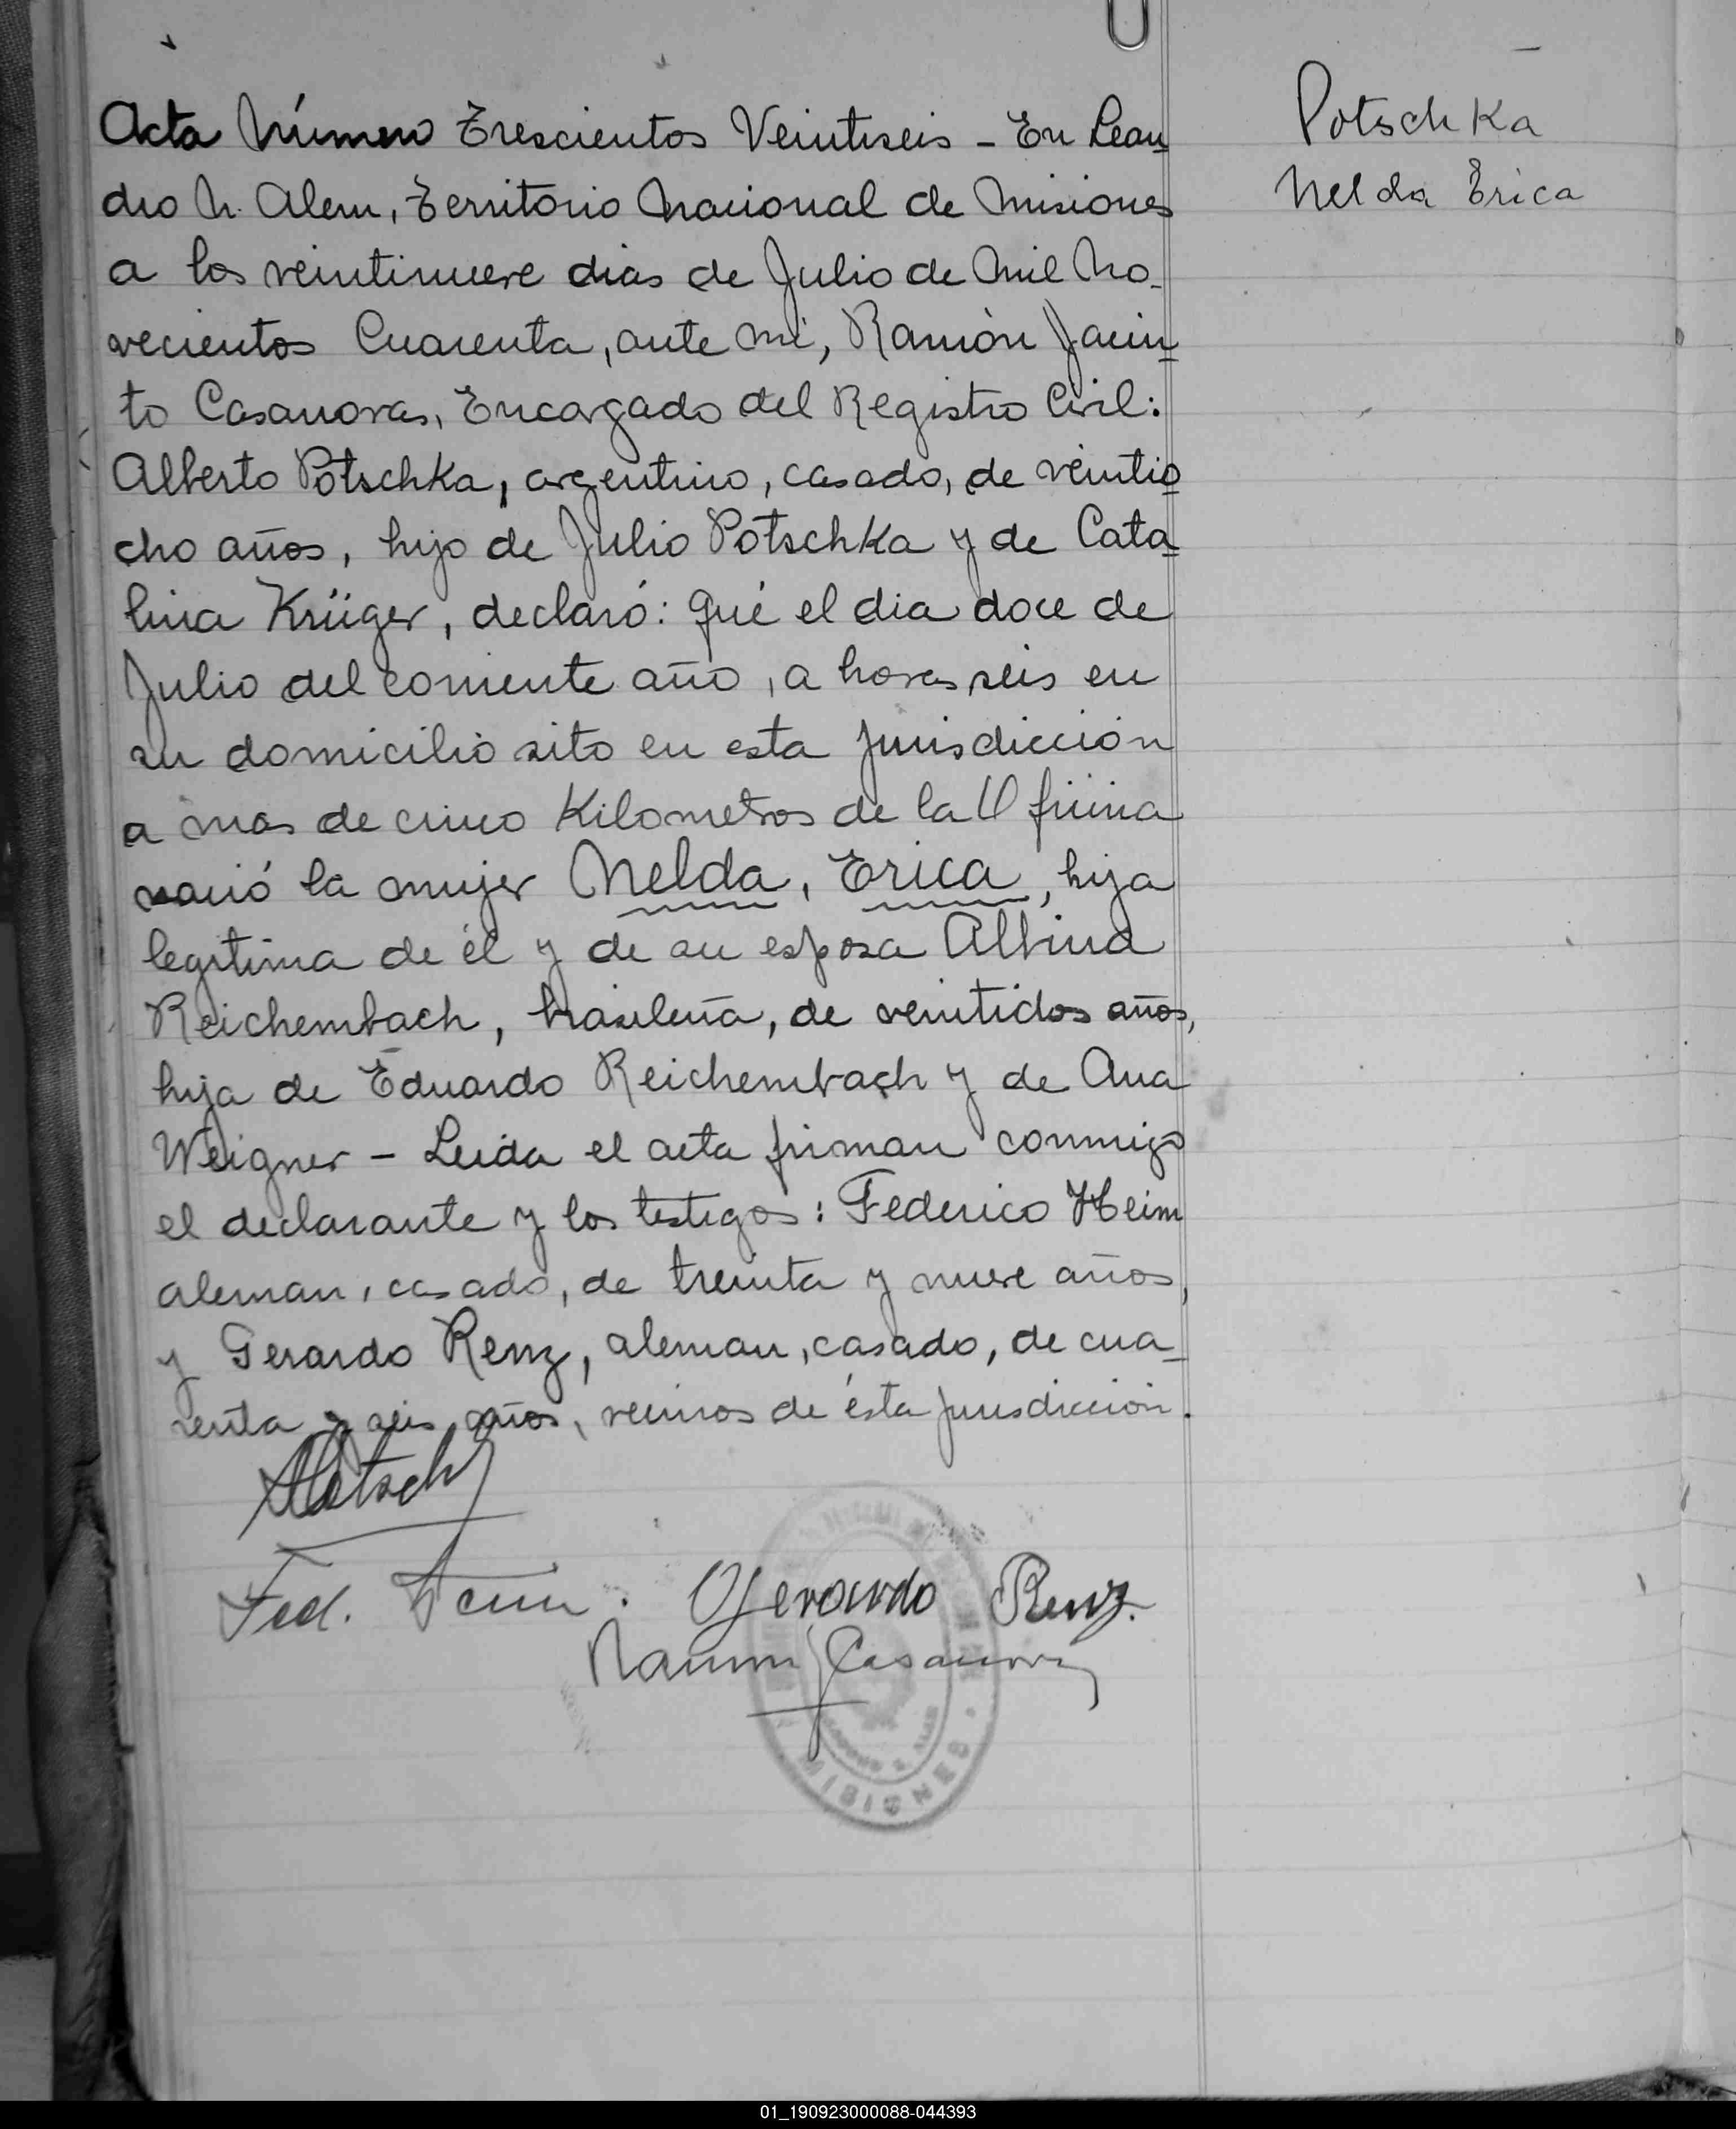 Acta Número Trescientos Veintiseis - En Lean
dro N. Alem, Territorio Nacional de Misiones
a los veintinueve dias de Julio de Mil No-
vecientos Cuarenta, ante mi, Ramón Jacin
to Casanovas, Encargado del Registro Civil:
Alberto Potschka, argentino, casado, de veintio
cho años, hijo de Julio Potschka y de Cata
lina Krüger, declaró: qué el dia doce de
Julio del corriente año, a horas seis en
su domicilio sito en esta jurisdicción
a mas de cinco Kilometros de la Oficina
nació la mujer Nelda, Erica, hija
legitima de él y de su esposa Albina
Reichembach, brasileña, de veintidos años,
hija de Eduardo Reichembach y de Ana
Weigner - Leida el acta firman conmigo
el declarante y los testigos: Federico Heim
aleman, casado, de treinta y nueve años,
y Gerardo Renz, aleman, casado, de cua-
renta y seis años, vecinos de ésta jurisdicción.
Fed. Heim. Gerardo Renz.
Ramon J Casanovas
MISIONES
Potschka
Nelda Erica
01_190923000088-044393